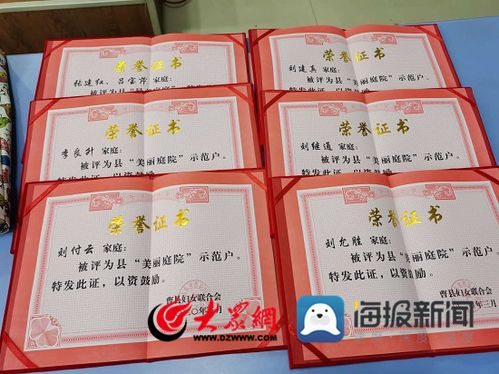 荣誉证书
张建红、吕宝芹 家庭:
荣誉证书
刘建真 家庭:
被评为县“美丽庭院”示范户。
荣誉证书
李良升 家庭:
被评为县“美丽庭院”示范户。
特发此证,以资鼓励。
荣誉证书
刘继通 家庭:
被评为县“美丽庭院”示范户。
特发此证,以资鼓励。
荣誉证书
刘付云 家庭:
被评为县“美丽庭院”示范户。
特发此证,以资鼓励。
曹县妇女联合会
荣誉证书
刘允胜 家庭:
被评为县“美丽庭院”示范户。
特发此证,以资鼓励。
曹县妇女联合会
年三月
大众网
WWW.DZWWW.COM
海报新闻